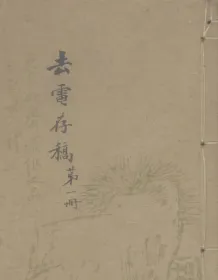 去電存稿第一冊